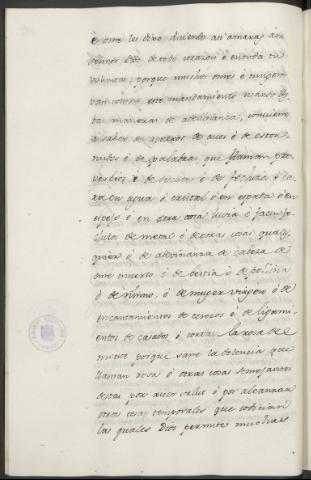 è este les dixo diciendo asi amaras à tu
Señor Dios de todo corazon è en toda tu
voluntat, porque muchos omes è mugeres
van contra este mandamiento usando de
tas maneras de adevinanza, conviene
à saber de agueros de aves è de estor
nudos è de palabras que llaman pro
verbios è de suertes è de fechizos è ca
tan en agua ò cristal ò en espada ò en
espejo ò en otra cosa lucia è facen fe
chizos de metal è de otra cosa qual
quier è de adevinanza de cabeza de
ome muerto ò de bestia ò de polilla
ò de niño, ò de muger virgen ò de
encantamientos de cercos ò de ligami
entos de casados ò cortar la rosa de el
monte porque sane la dolencia que
llaman rosa è otras cosas semejantes
destas por aver salut ò por alcanzar
otras cosas temporales que cobdician
las quales Dios permite muchas